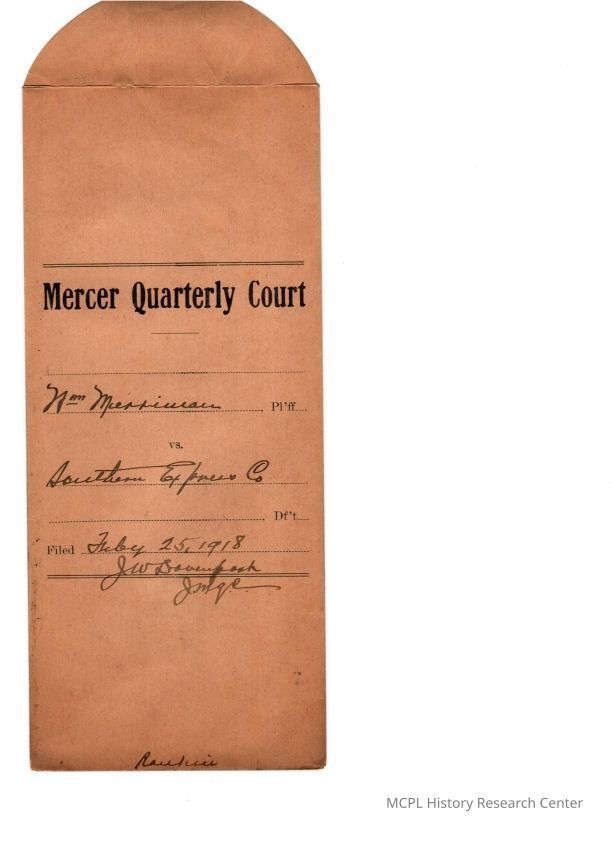 Mercer Quarterly Court
Wm Merriman Pl'ff.
vs.
Southern Express Co
Df't.
Filed Feby 25, 1918
JW Davenport
Rankin
MCPL History Research Center